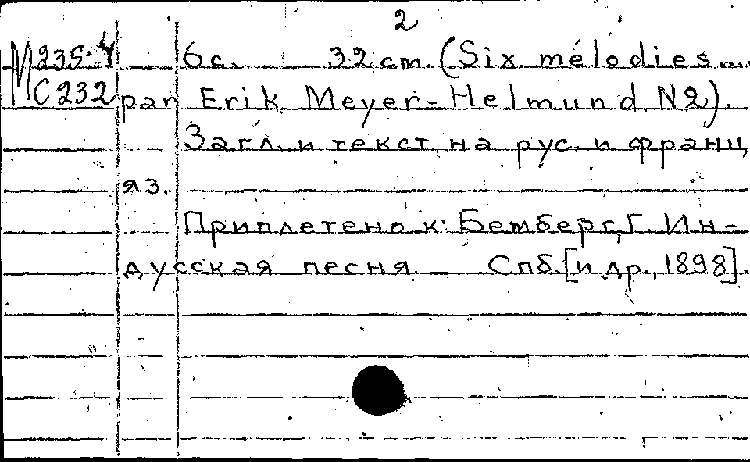 2
М 235-4 6 с. 32 см. (Six mélodies...
С 232 par Erik Meyer-Helmund N2).
Загл. и текст на рус. и франц.
яз.
Приплетено к: Бемберг, Г. Ин-
дусская песня – Спб. [и др., 1898].